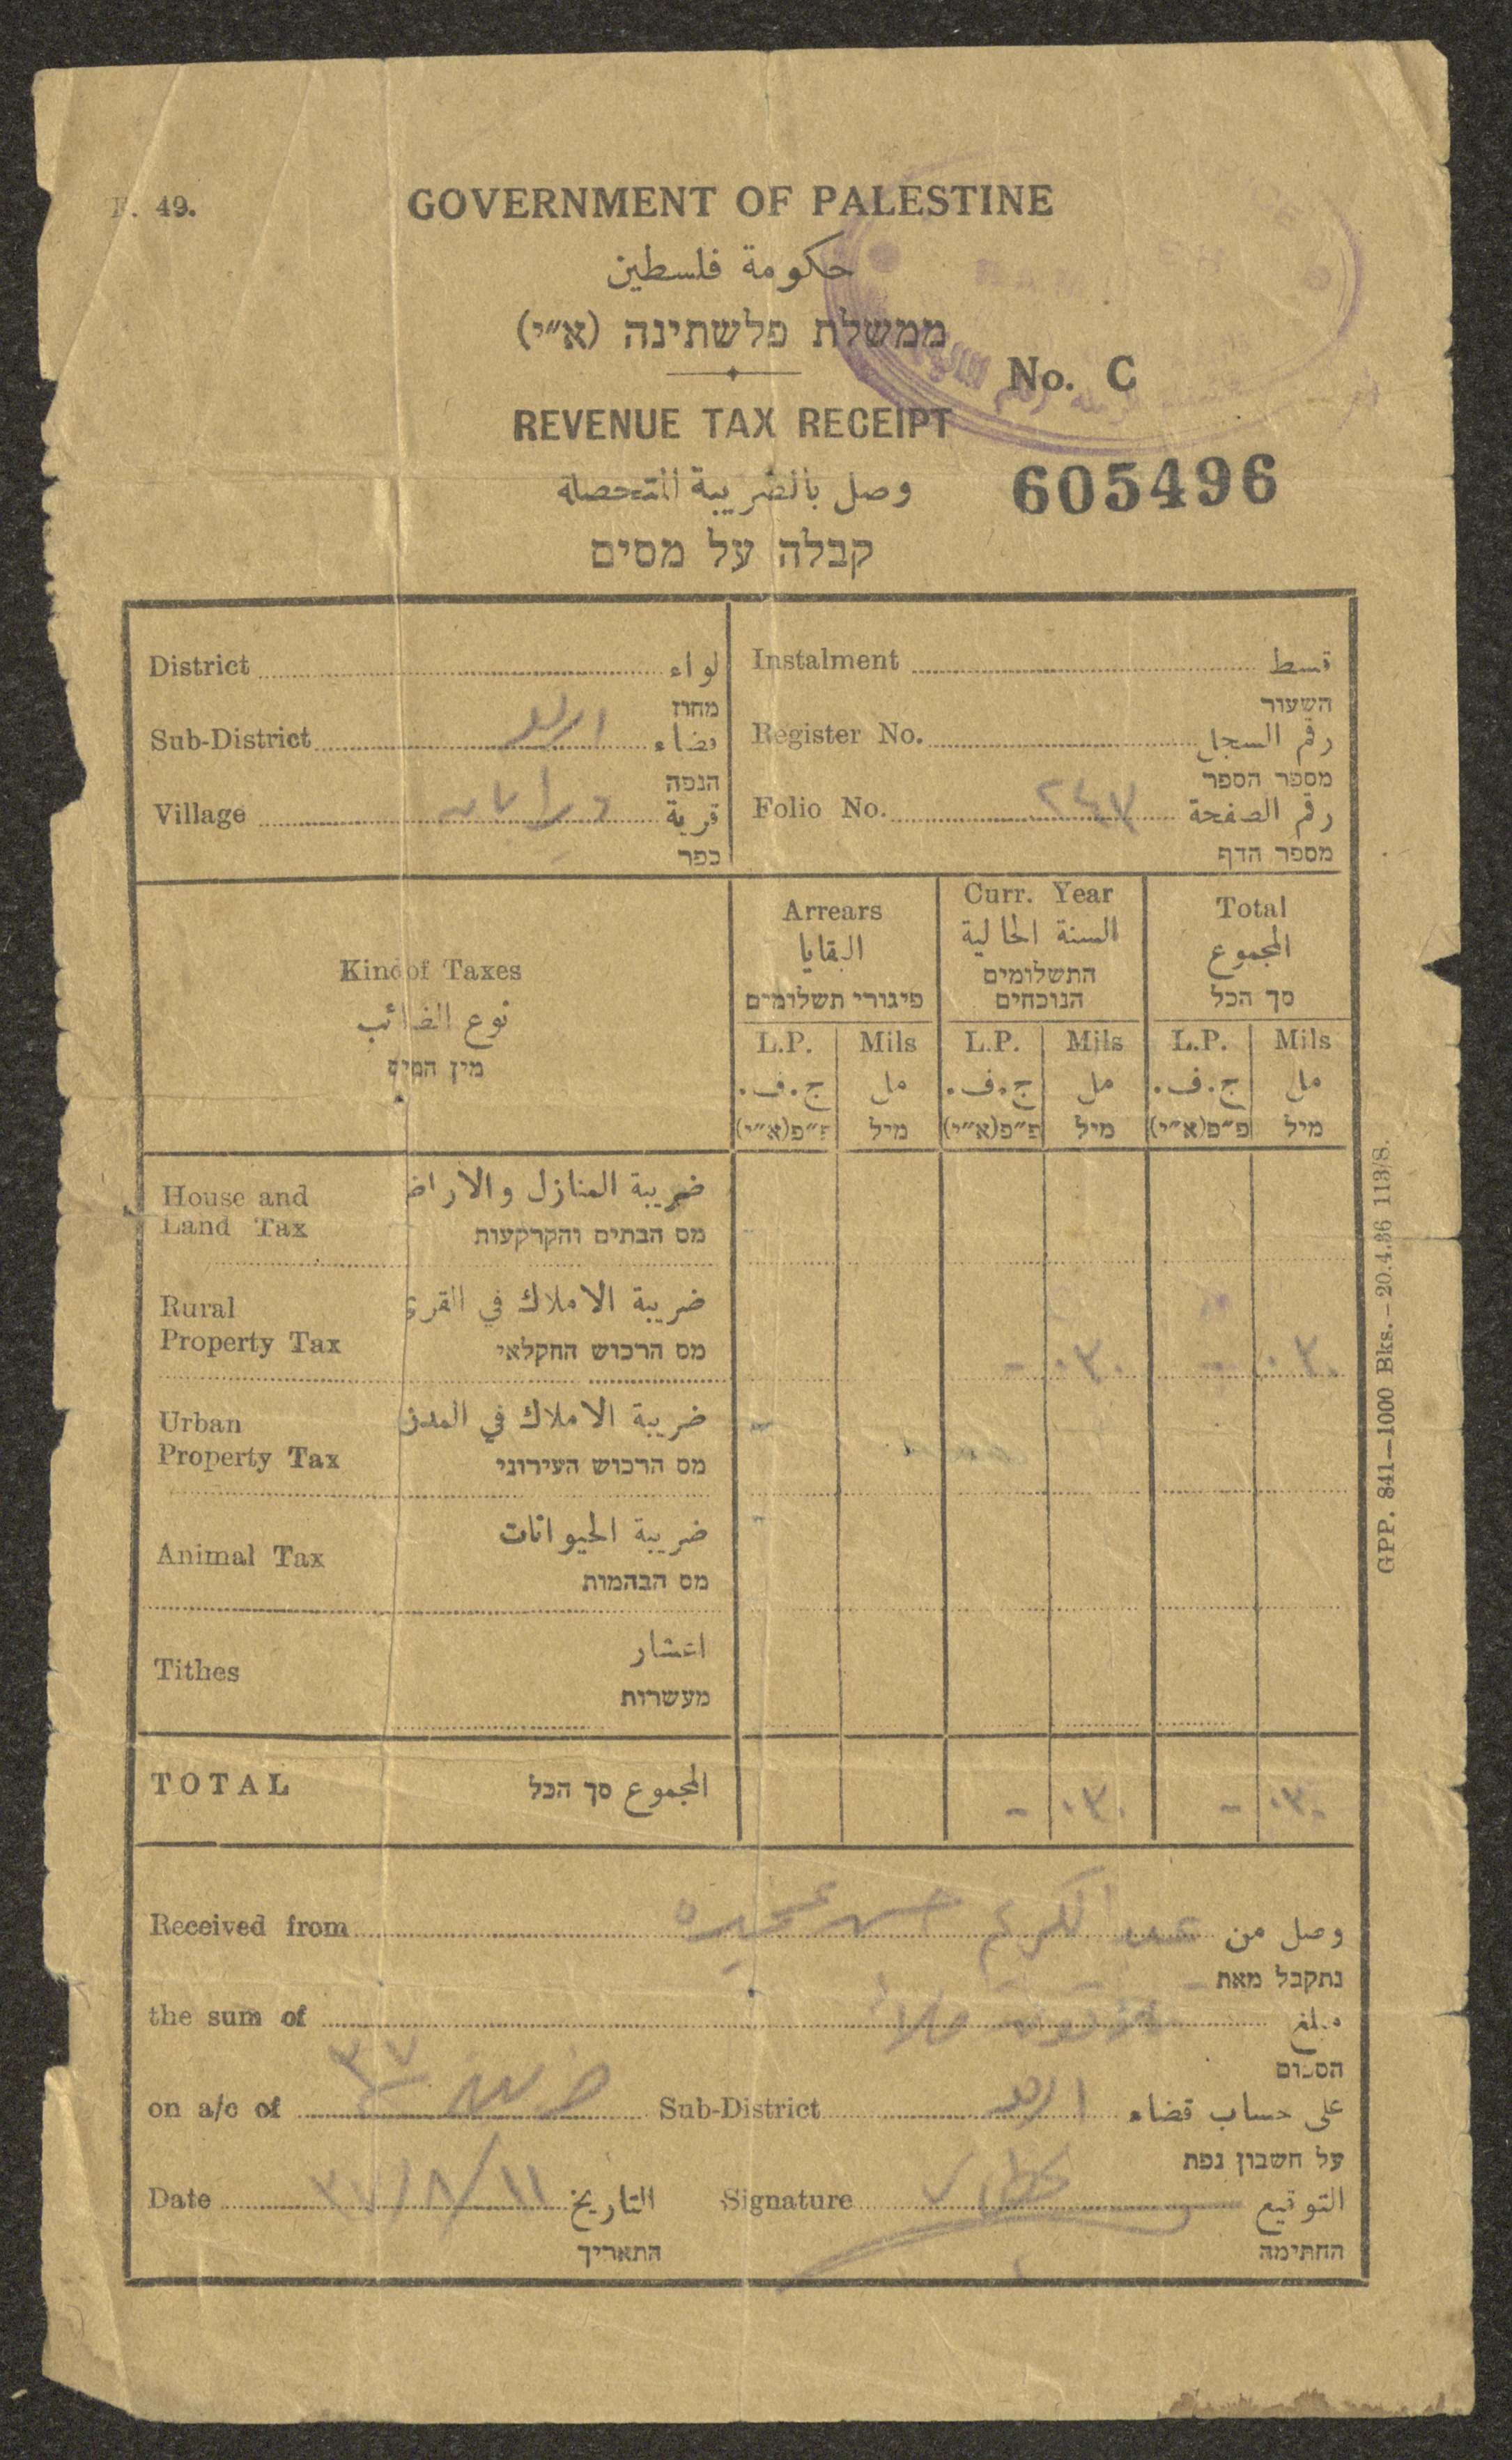 F. 49.
GOVERNMENT OF PALESTINE
حكومة فلسطين
ממשלת פלשתינה (א״י)
No. C
REVENUE TAX RECEIPT
605496
وصل بالضريبة المتحصلة
קבלה על מסים
District لواء
מחוז
Instalment قسط
השעור
Sub-District قضاء
הנפה
Register No. رقم السجل
מספר הספר
Village قرية
כפר
Folio No. ٢٤٧ رقم الصفحة
מספר הדף
Kind of Taxes
نوع الضرائب
מין המיסים
Arrears
البقايا
פיגורי תשלומים
Curr. Year
السنة الحالية
התשלומים הנוכחים
Total
المجموع
סך הכל
L.P. Mils L.P. Mils L.P. Mils
ج.ف. مل ج.ف. مل ج.ف. مل
פ״פ(א״י) מיל פ״פ(א״י) מיל פ״פ(א״י) מיל
House and Land Tax ضريبة المنازل والاراض
מס הבתים והקרקעות
Rural Property Tax ضريبة الاملاك في القرى
מס הרכוש החקלאי
- ٠٣٠ - ٠٣٠
Urban Property Tax ضريبة الاملاك في المدن
מס הרכוש העירוני
Animal Tax ضريبة الحيوانات
מס הבהמות
Tithes اعشار
מעשרות
TOTAL المجموع סך הכל
- ٠٣٠ - ٠٣٠
Received from عبد الكريم حسن وصل من
נתקבל מאת
the sum of مبلغ
הסכום
on a/c of ضريبة ٣٧ Sub-District على حساب قضاء
על חשבון נפת
Date ١١/٨/٣٧ التاريخ
התאריך
Signature التوقيع
החתימה
GPP. 841—1000 Bks.—20.4.36 113/S.